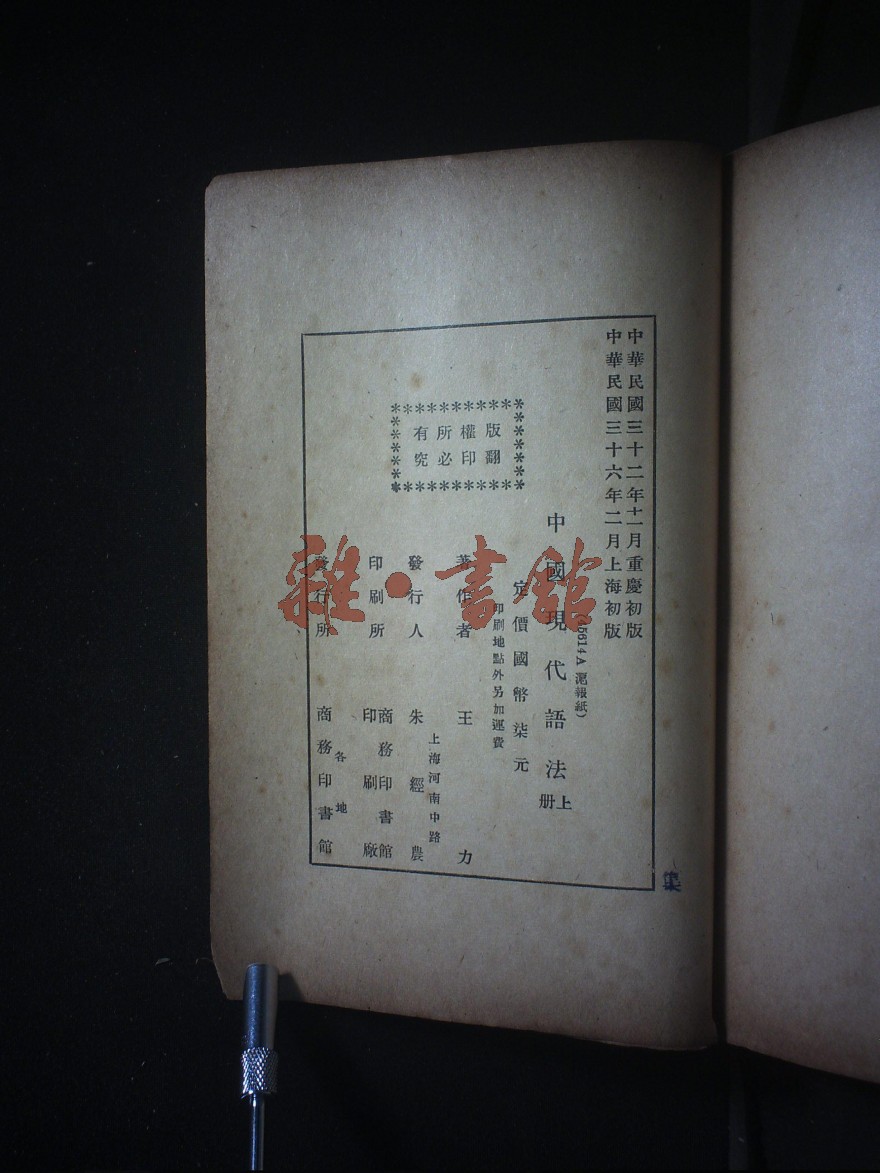 中華民國三十二年十一月重慶初版
中華民國三十六年二月上海初版
中國現代語法上册
(45614A 滬報紙)
定價國幣柒元
印刷地點外另加運費
版權所有
翻印必究
著作者 王力
上海河南中路
發行人 朱經農
印刷所 商務印書館印刷廠
各地
發行所 商務印書館
雜·書館